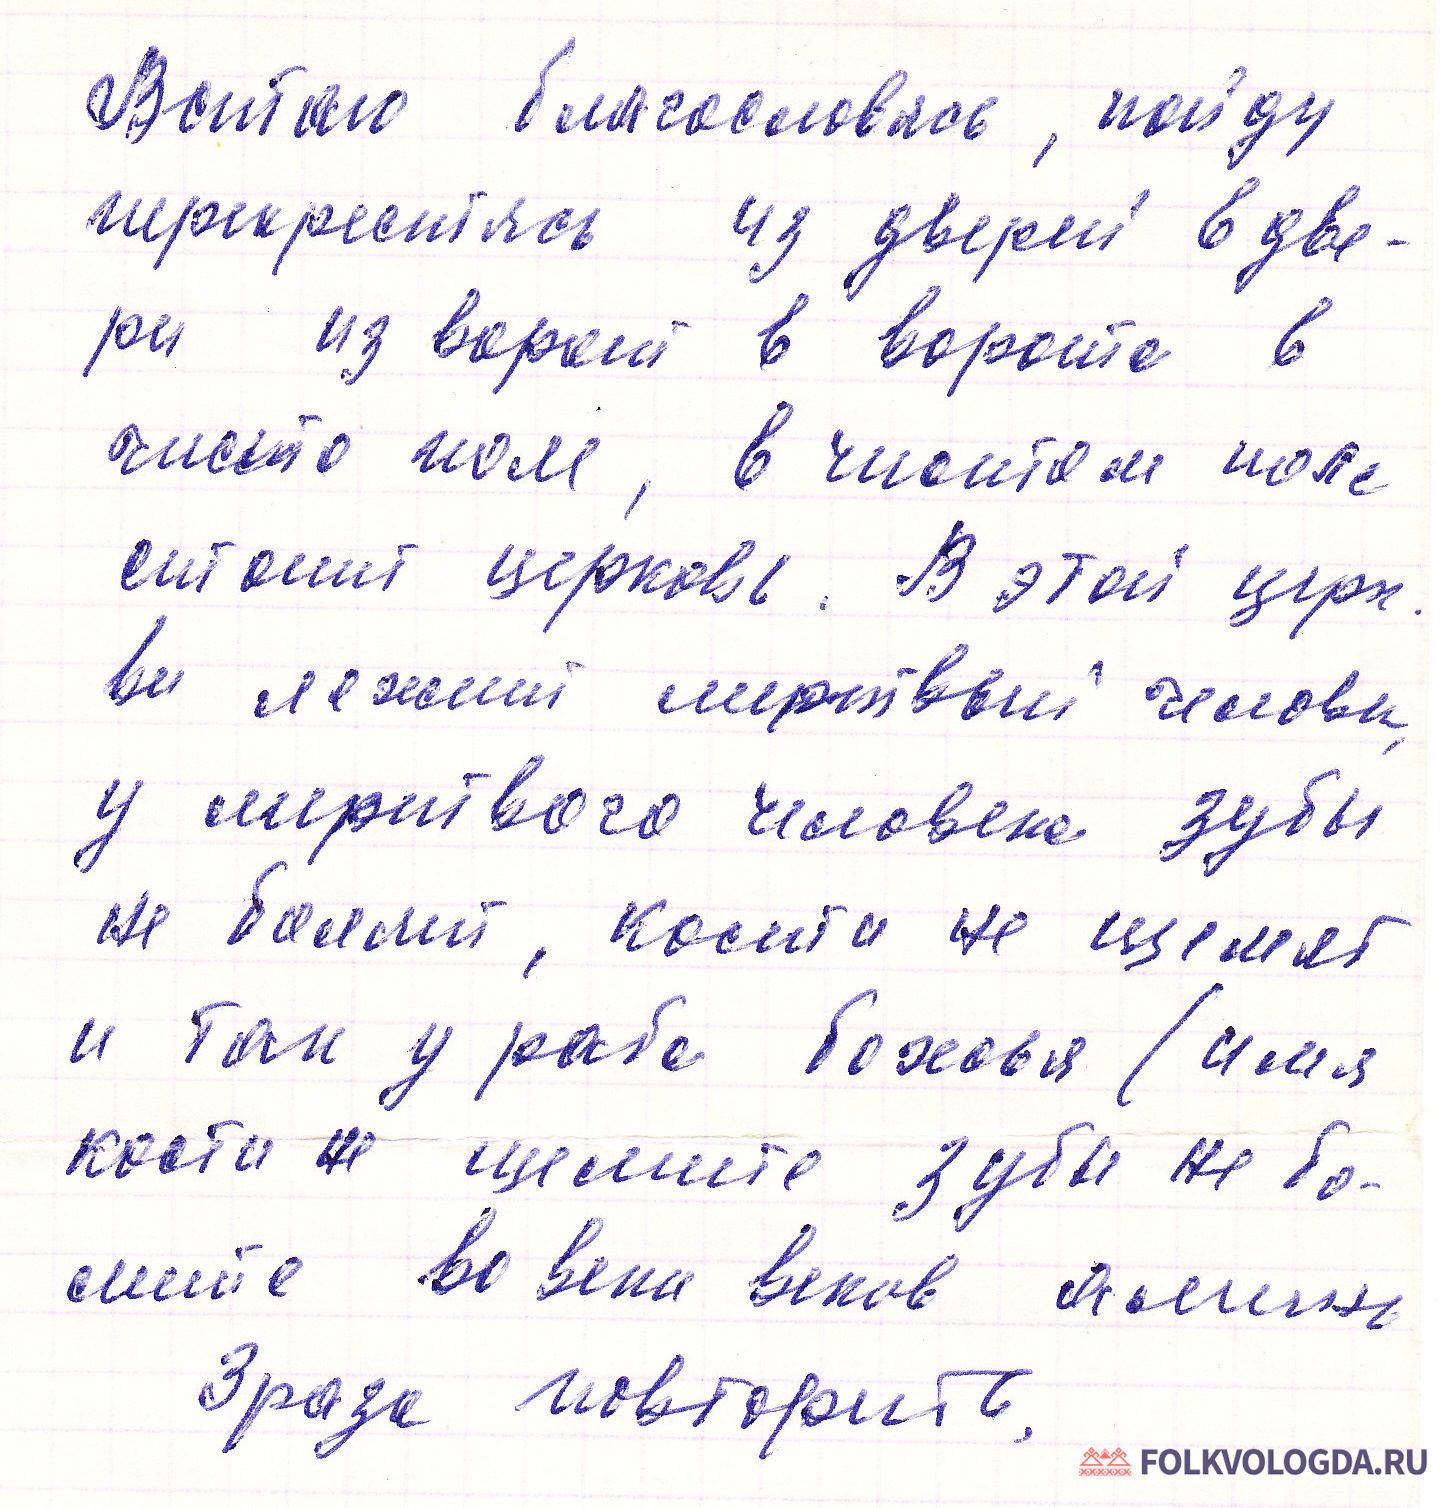 Встаю благословясь, пойду
перекрестясь из дверей в две-
ри из ворот в ворота в
чисто поле, в чистом поле
стоит церковь. В этой церк-
ви лежит мертвый человек,
у мертвого человека зубы
не болят, кости не щемят
и так у раба божья (имя
кости не щемите зубы не бо-
лите во веки веков аминь
3 раза повторить.
FOLKVOLOGDA.RU